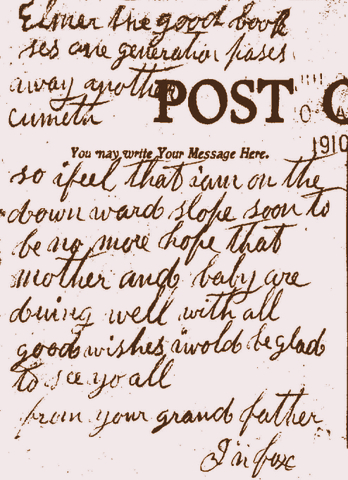 Elmer the good book
ses one generation pases
away another
cumeth
POST C
1910
You may write Your Message Here.
so ifeel that iam on the
down ward slope soon to
be no more hope that
mother and baby are
doing well with all
good wishes iwold be glad
to see yo all
from your grand father
J n fox